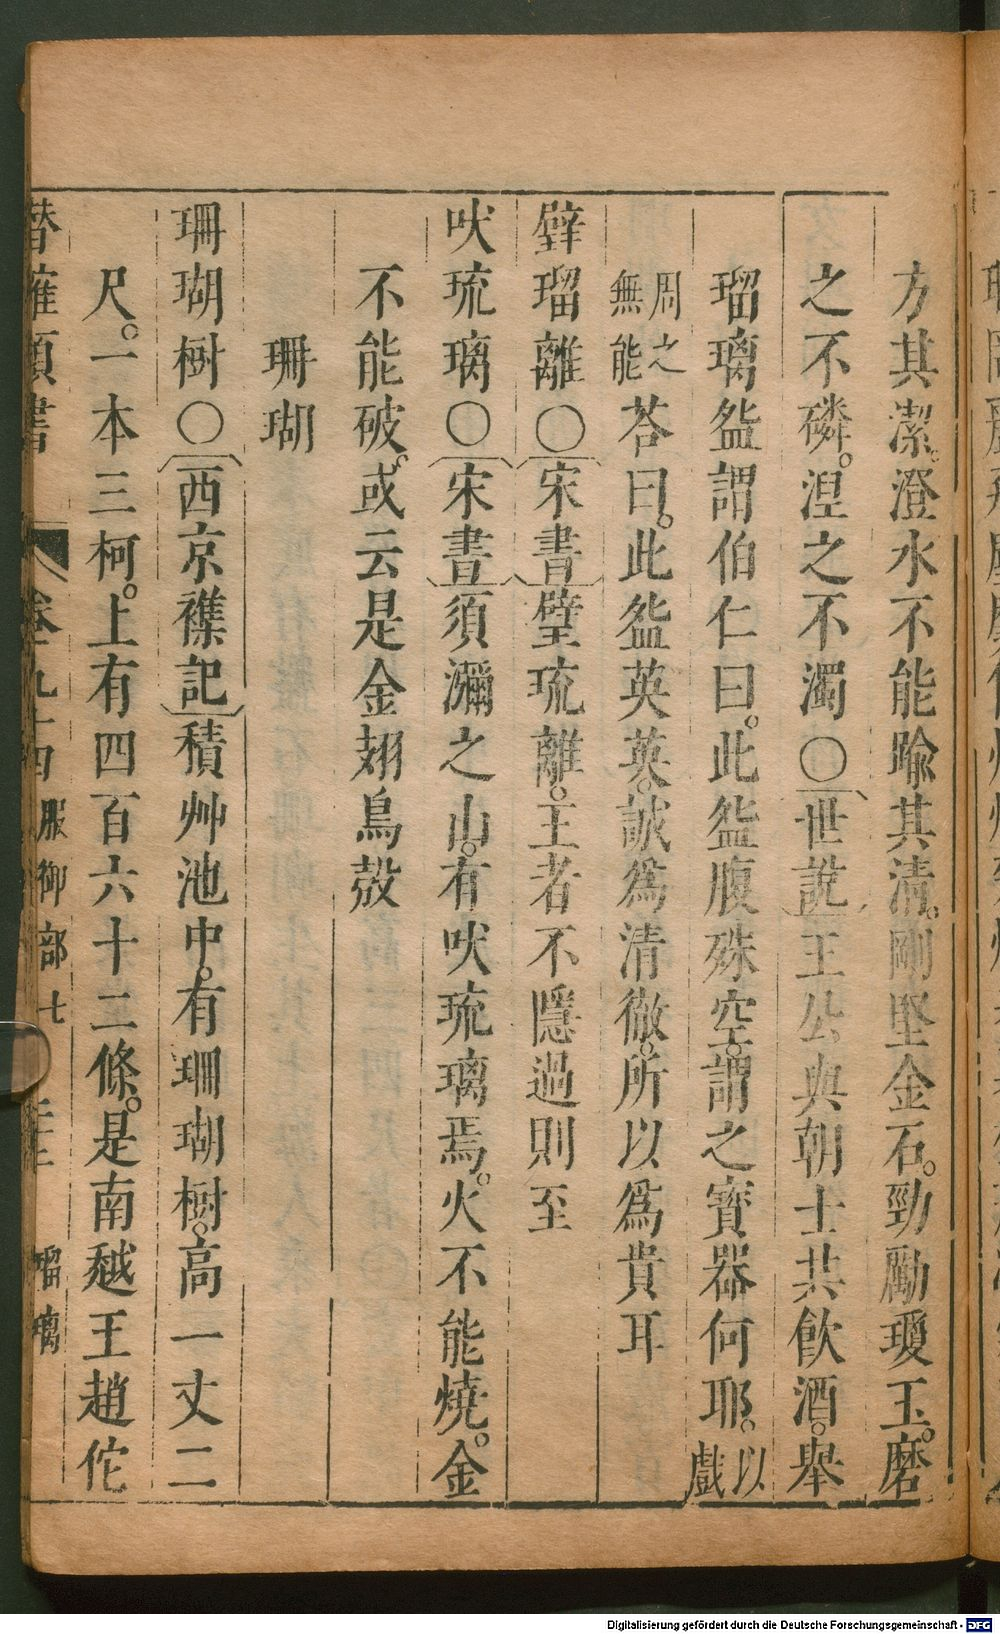 方其潔。澄水不能踰其清。剛堅金石。勁勵瓊玉。磨
之不磷。湼之不濁〇世說王公與朝士共飲酒。舉
瑠璃盌謂伯仁曰。此盌腹殊空。謂之寶器何耶。以戲
周之無能荅曰。此盌英英。誠爲清徹。所以爲貴耳
璧瑠離〇宋書璧琉離。王者不隱過則至
吠琉璃〇宋書須瀰之山。有吠琉璃焉。火不能燒。金
不能破。或云是金翅鳥殼
珊瑚
珊瑚樹〇西京襍記積艸池中。有珊瑚樹。高一丈二
尺。一本三柯。上有四百六十二條。是南越王趙佗
潛確類書 卷九十四 服御部七 瑠璃
Digitalisierung gefördert durch die Deutsche Forschungsgemeinschaft - DFG